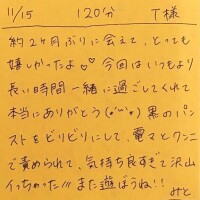 11/15 120分 T様
約2ヶ月ぶりに会えて、とっても
嬉しかったよ♡♡ 今回はいつもより
長い時間一緒に過ごしてくれて
本当にありがとう(๑'ᴗ'๑) 黒のパン
ストをビリビリにして、電マとクンニ
で責められて、気持ち良すぎて沢山
イっちゃった/// また遊ぼうね!!
みと